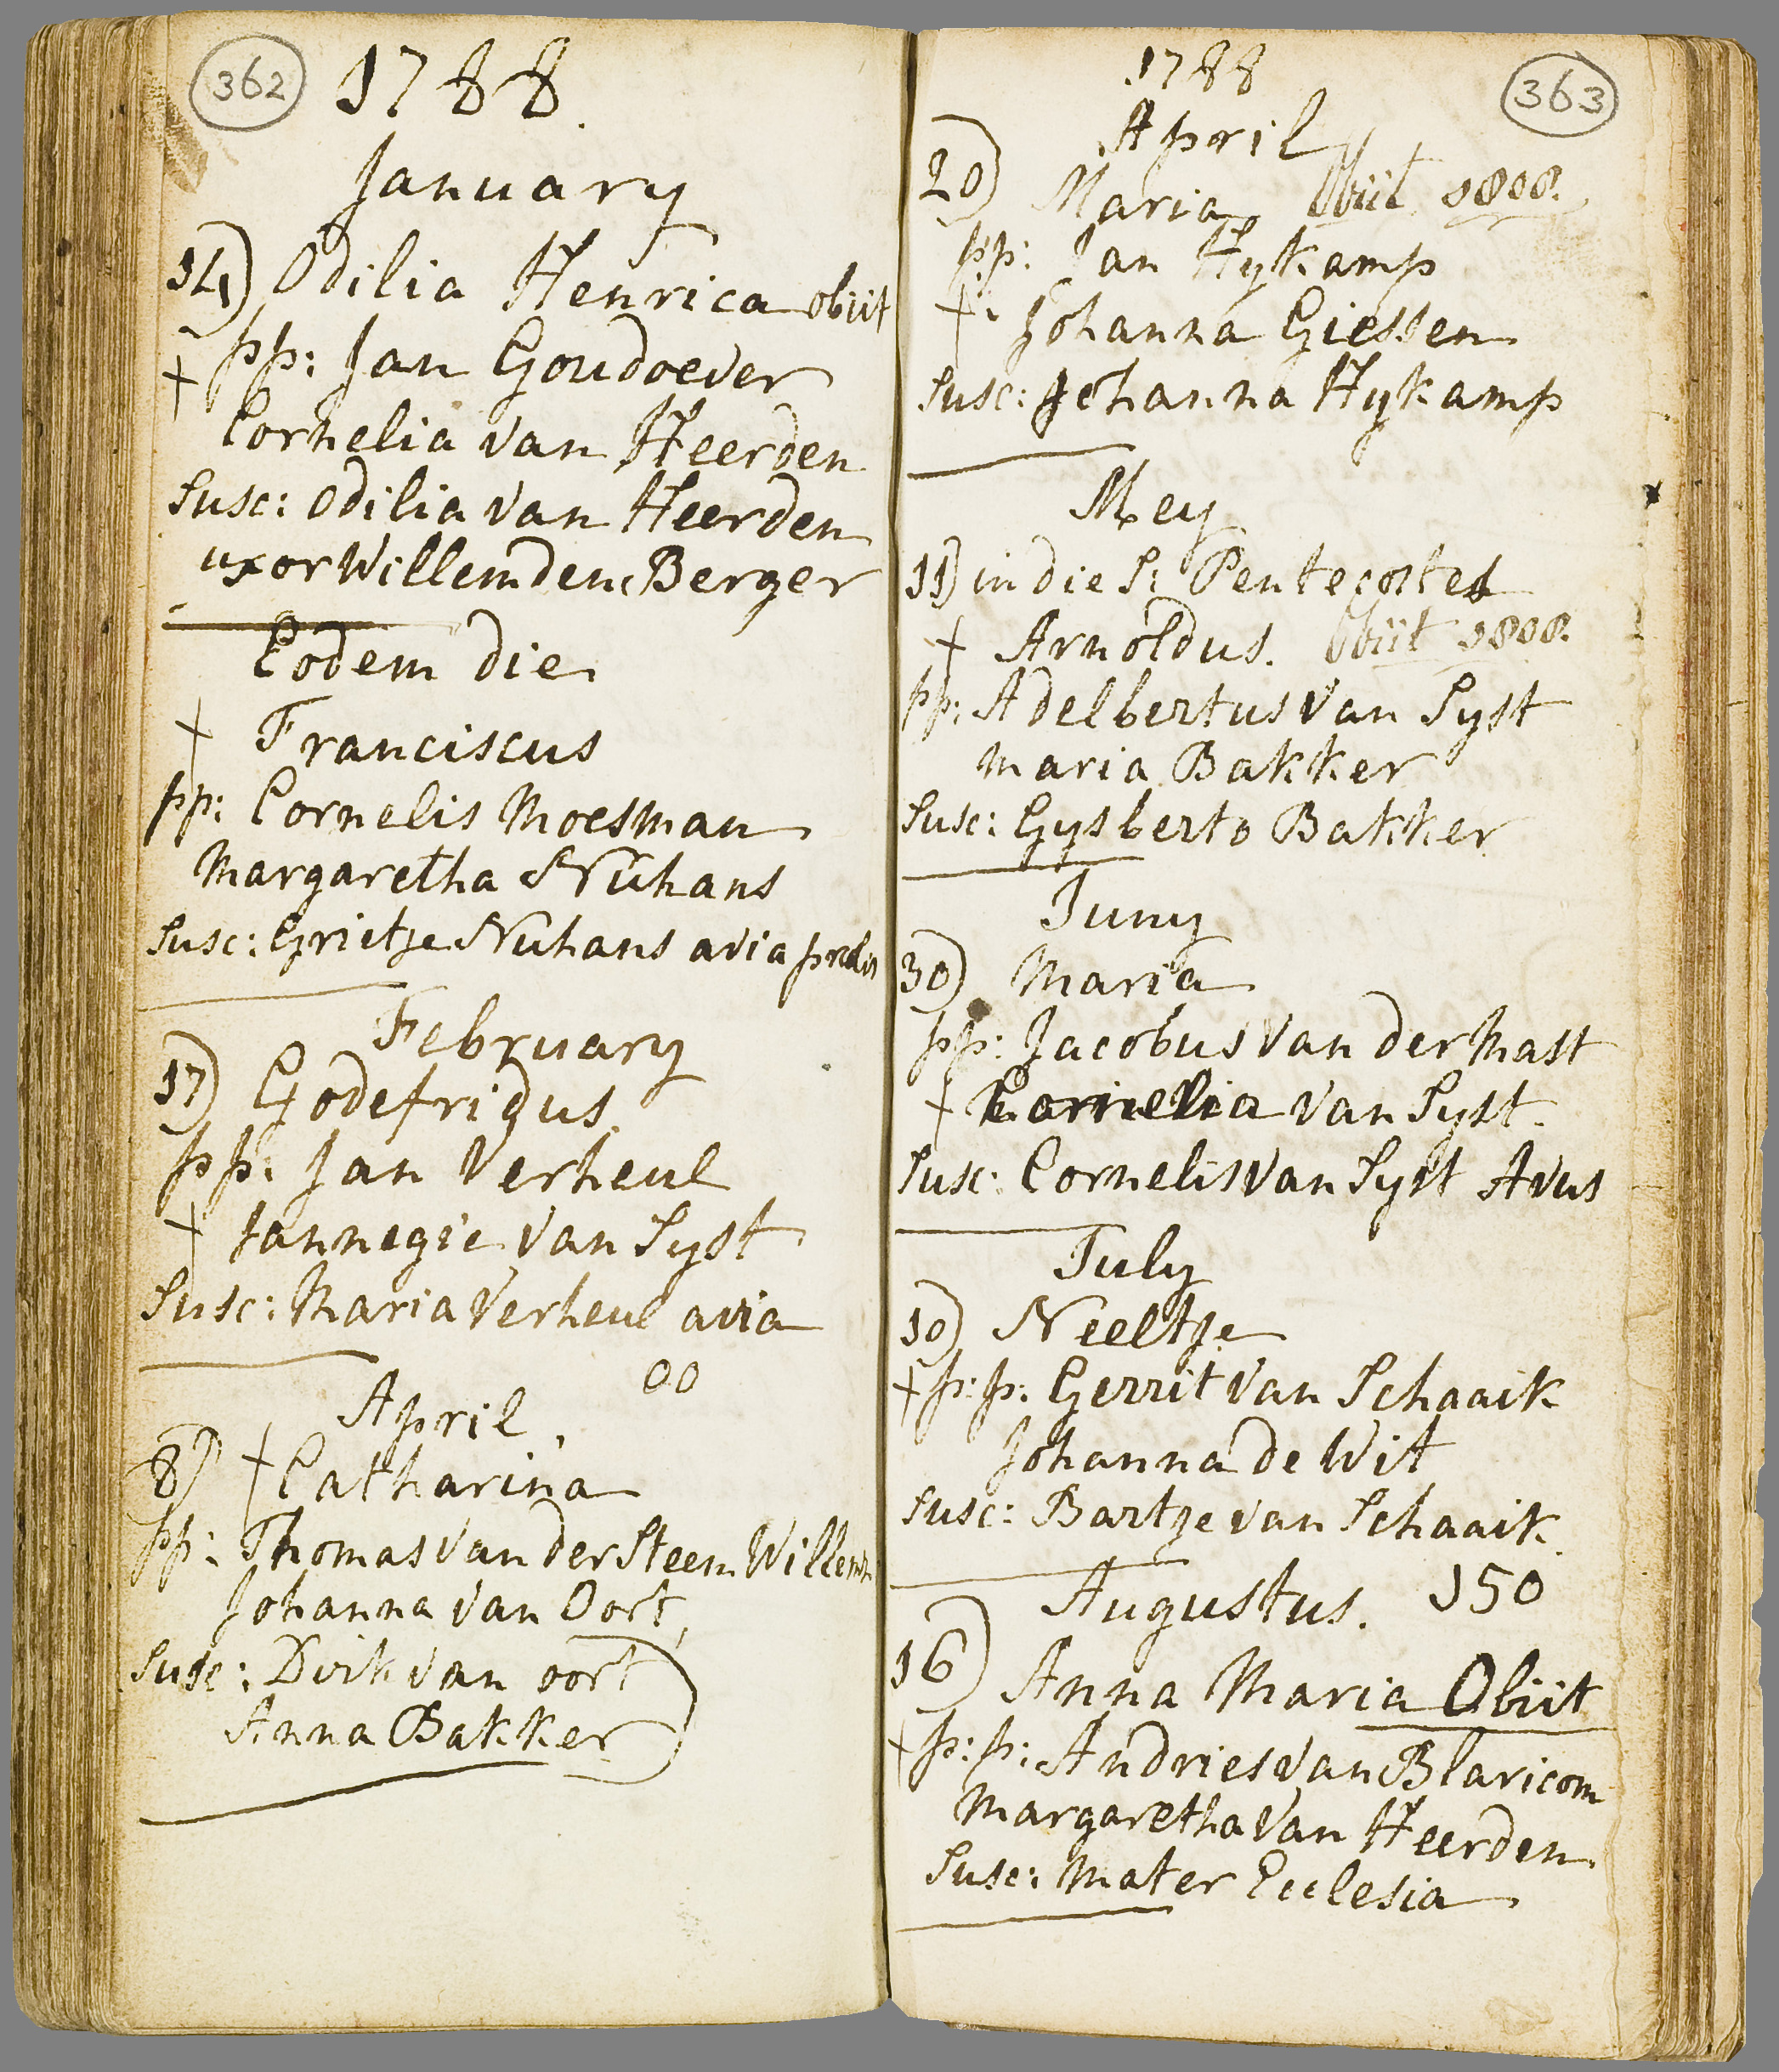 362
1788.
January
14) Odilia Henrica obiit
† pp: Jan Goudoever
Cornelia van Heerden
Susc: Odilia van Heerden
uxor Willem den Berger
Eodem die
† Franciscus
pp: Cornelis Moesman
Margaretha Nuhans
Susc: Grietje Nuhans avia
February
17) Godefridus
pp: Jan Verheul
† Jannegie van Syst
Susc: Maria Verheul avia
00
April
8) † Catharina
pp: Thomas van der Steen
Johanna van Oort
Susc: Dirk van oort
Anna Bakker
363
1788
April
20) Maria Obiit 1808.
pp: Jan Hykamp
† Johanna Giessen
Susc: Johanna Hykamp
Mey
11) in die S: Pentecostes
† Arnoldus. Obiit 1808.
pp: Adelbertus van Syst
Maria Bakker
Susc: Gysberto Bakker
Juny
30) Maria
pp: Jacobus van der Mast
† Cornelia van Syst.
Susc: Cornelis van Syst Avus
July
10) Neeltje
† p:p: Gerrit van Schaaik
Johanna de Wit
Susc: Bartje van Schaaik
Augustus. 150
16) Anna Maria Obiit
† p:p: Andries van Blaricom
Margaretha van Heerden
Susc: Mater Ecclesia